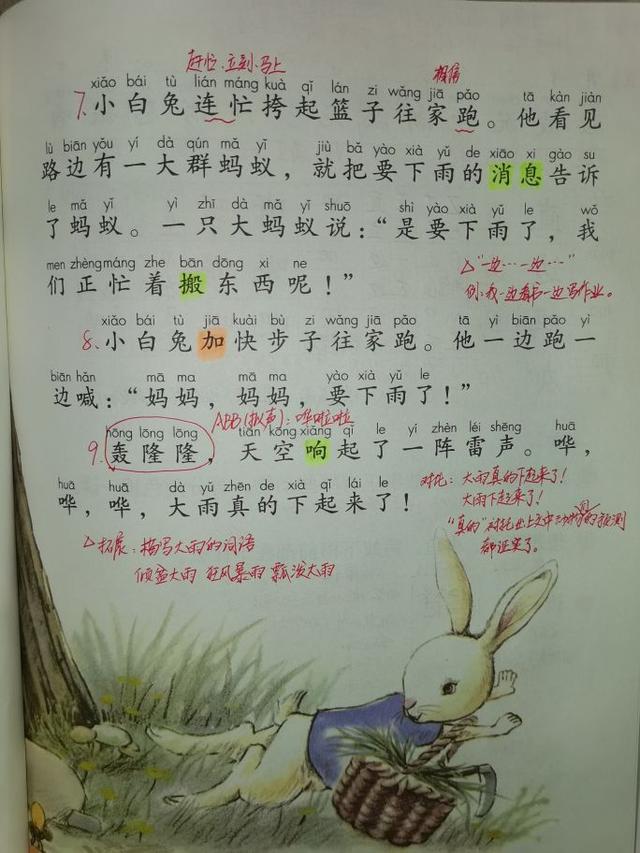 赶忙、立刻、马上
xiǎo bái tù lián máng kuà qǐ lán zi wǎng jiā pǎo tā kàn jiàn
7.小白兔连忙挎起篮子往家跑。他看见
lù biān yǒu yí dà qún mǎ yǐ jiù bǎ yào xià yǔ de xiāo xi gào su
路边有一大群蚂蚁，就把要下雨的消息告诉
le mǎ yǐ yì zhī dà mǎ yǐ shuō shì yào xià yǔ le wǒ
了蚂蚁。一只大蚂蚁说：“是要下雨了，我
men zhèng máng zhe bān dōng xi ne
们正忙着搬东西呢！”
△“一边……一边……”
例：我一边看书一边写作业。
xiǎo bái tù jiā kuài bù zi wǎng jiā pǎo tā yì biān pǎo yì
8.小白兔加快步子往家跑。他一边跑一
biān hǎn mā ma mā ma yào xià yǔ le
边喊：“妈妈，妈妈，要下雨了！”
ABB(拟声)：哗啦啦
hōng lōng lōng tiān kōng xiǎng qǐ le yí zhèn léi shēng huā
9.轰隆隆，天空响起了一阵雷声。哗，
huā huā dà yǔ zhēn de xià qǐ lái le
哗，哗，大雨真的下起来了！
对比：大雨真的下起来了！
大雨下起来了！
“真的”对比出上文中动物的预测
都证实了。
△拓展：描写大雨的词语
倾盆大雨 狂风暴雨 瓢泼大雨